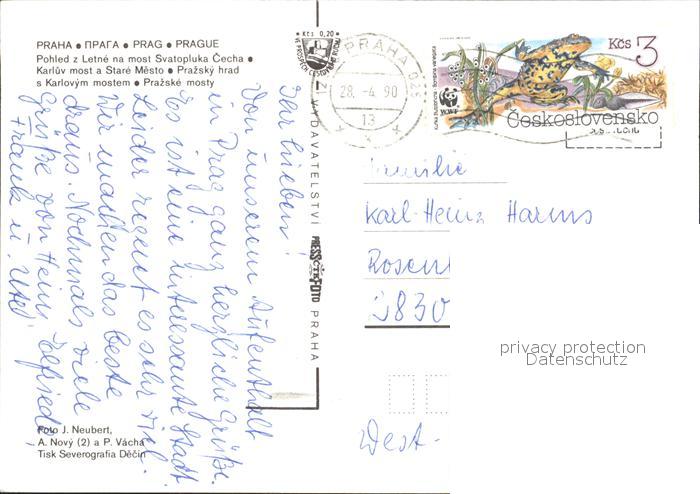 PRAHA • ПРАГА • PRAG • PRAGUE
Pohled z Letné na most Svatopluka Čecha •
Karlův most a Staré Město • Pražský hrad
s Karlovým mostem • Pražské mosty
Ihr Lieben!
Von unserem Aufenthalt
in Prag ganz herzliche Grüße.
Es ist eine interessante Stadt.
Leider regnet es sehr viel.
Wir machen das beste
draus. Nochmals viele
Grüße von Heinz,
Frank u. Ute
Foto J. Neubert,
A. Nový (2) a P. Vácha
Tisk Severografia Děčín
Kčs 0,20
VYDAVATELSTVÍ PRESSFOTO PRAHA
PRAHA 025
28.-4.90
13
Kčs 3
WWF
Československo
Familie
Karl-Heinz Harms
Rosen
2830
West-
privacy protection
Datenschutz